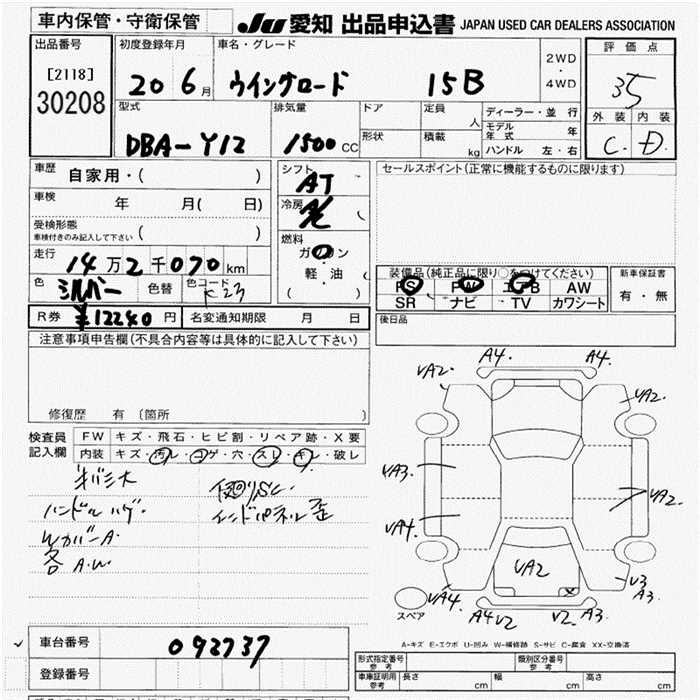 車内保管・守衛保管
JU 愛知 出品申込書 JAPAN USED CAR DEALERS ASSOCIATION
出品番号 初度登録年月 車名・グレード 2WD・4WD 評価点
[2118]
30208
20 6月 ウイングロード 15B 35
外装 内装
C. D.
型式 排気量 ドア 定員 人 ディーラー・並行
DBA-Y12 1500 CC 形状 積載 kg モデル年式 年
ハンドル 左・右
車歴 自家用・( )
シフト AT
セールスポイント(正常に機能するものに限ります)
車検 年 月( 日)
冷房 AC
受検形態
車検付きのみ記入して下さい ( )
燃料 ガソリン
軽・油
( )
走行 14万2千070km
装備品(純正品に限り○をつけてください) 新車保証書
PS PW エアB AW 有・無
SR ナビ TV カワシート
色 シルバー 色替 色コード K23
R券 ¥12240円 名変通知期限 月 日
後日品
注意事項申告欄(不具合内容等は具体的に記入して下さい)
修復歴 有 (箇所 )
検査員記入欄 FW キズ・飛石・ヒビ割・リペア跡・X要
内装 キズ・汚レ・コゲ・穴・スレ・キレ・破レ
キバミ大
ハンドルハゲ
Wカバー A
各 A.W
インドパネル歪
A4. A4.
VA2. VA2.
VA3. VA2.
VA4.
VA2
VA4. A4 V2 V2 A3 V3 A3.
スペア
A-キズ E-エクボ U-凹み W-補修跡 S-サビ C-腐食 XX-交換済
車台番号 092737
登録番号
形式指定番号 参考 類別区分番号 参考
車庫証明用 参考 長さ cm 幅 cm 高さ cm